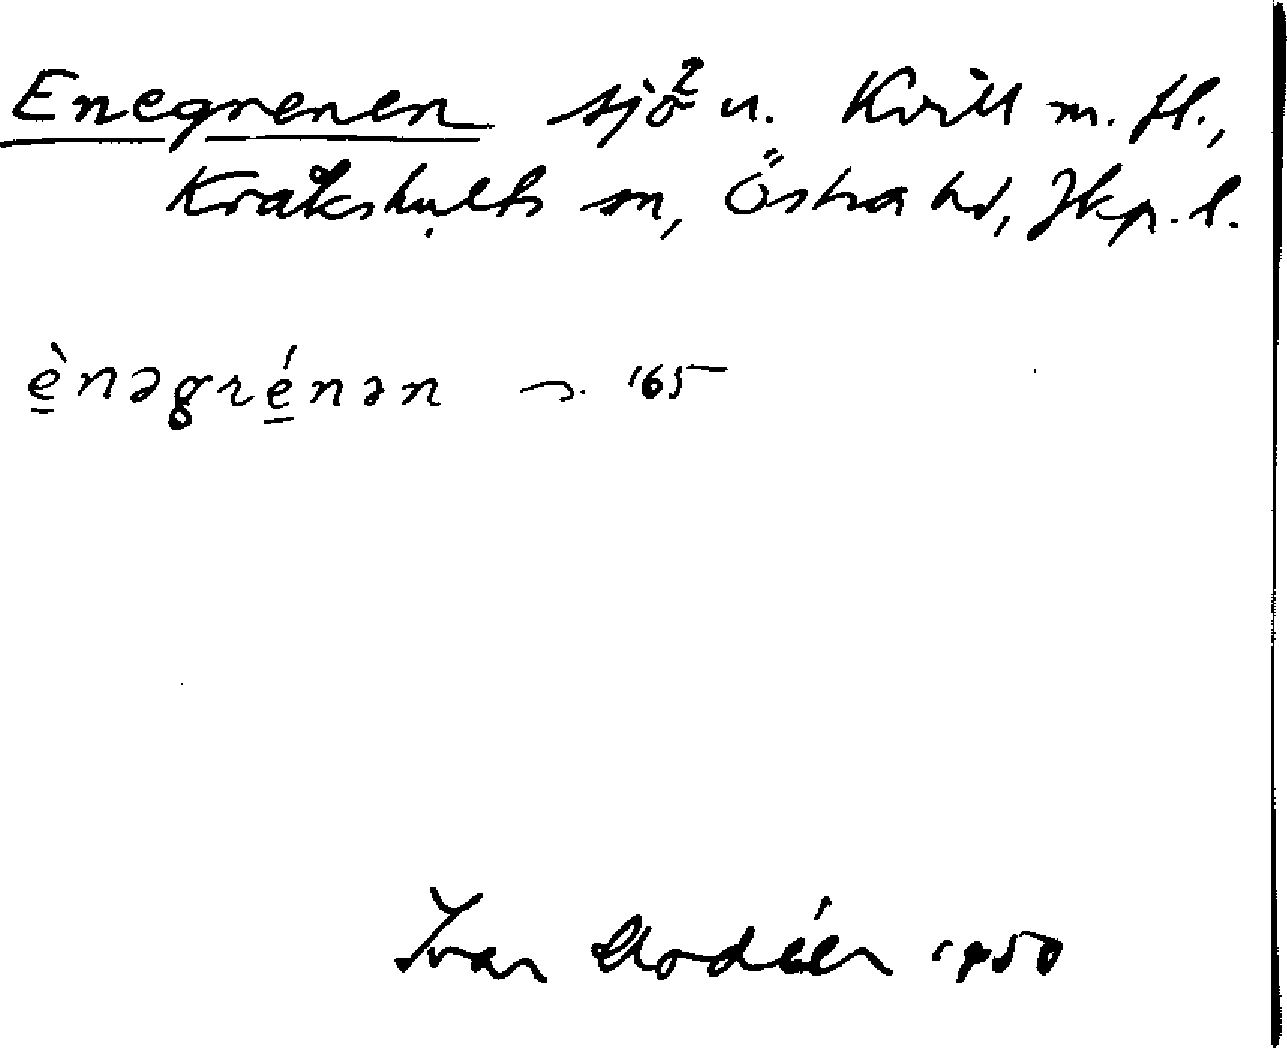 Enegrenen sjö² u. Kvill m. fl.,
Kråkshults sn, Östra hd, Jkp. l.
è̲nəgré̲nən '65
Ivar Modéer 1950